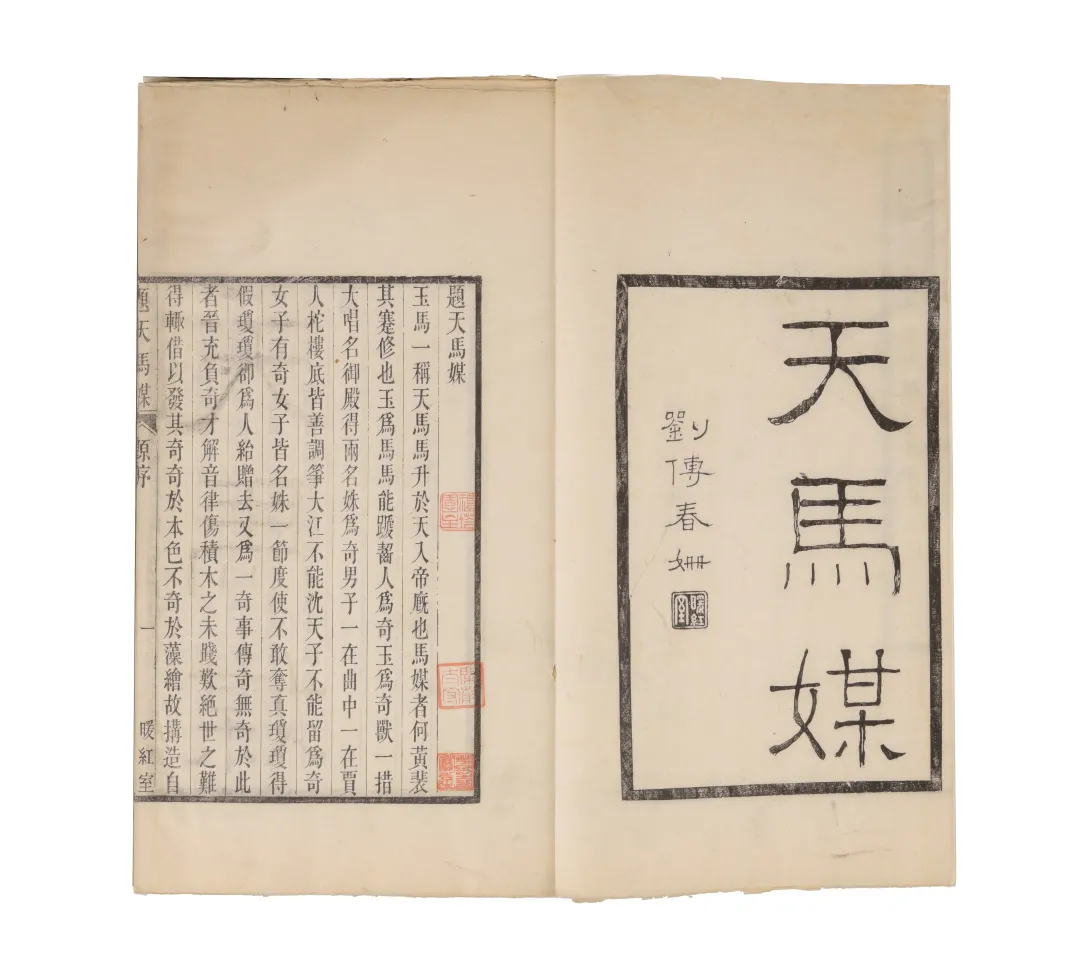 天馬媒
劉傳春姍
暖紅室
題天馬媒
玉馬一稱天馬馬升於天入帝廐也馬媒者何黃裴
其蹇修也玉爲馬馬能蹤齧人爲奇玉爲奇獸一措
大唱名御殿得兩名姝爲奇男子一在曲中一在賈
人柁樓底皆善調箏大江不能沈天子不能留爲奇
女子有奇女子皆名姝一節度使不敢奪真瓊瓊得
假瓊瓊卻爲人紿贈去又爲一奇事傳奇無奇於此
者晉充負奇才解音律傷積木之未踐歎絕世之難
得輙借以發其奇奇於本色不奇於藻繪故搆造自
題天馬媒
原序
一
暖紅室